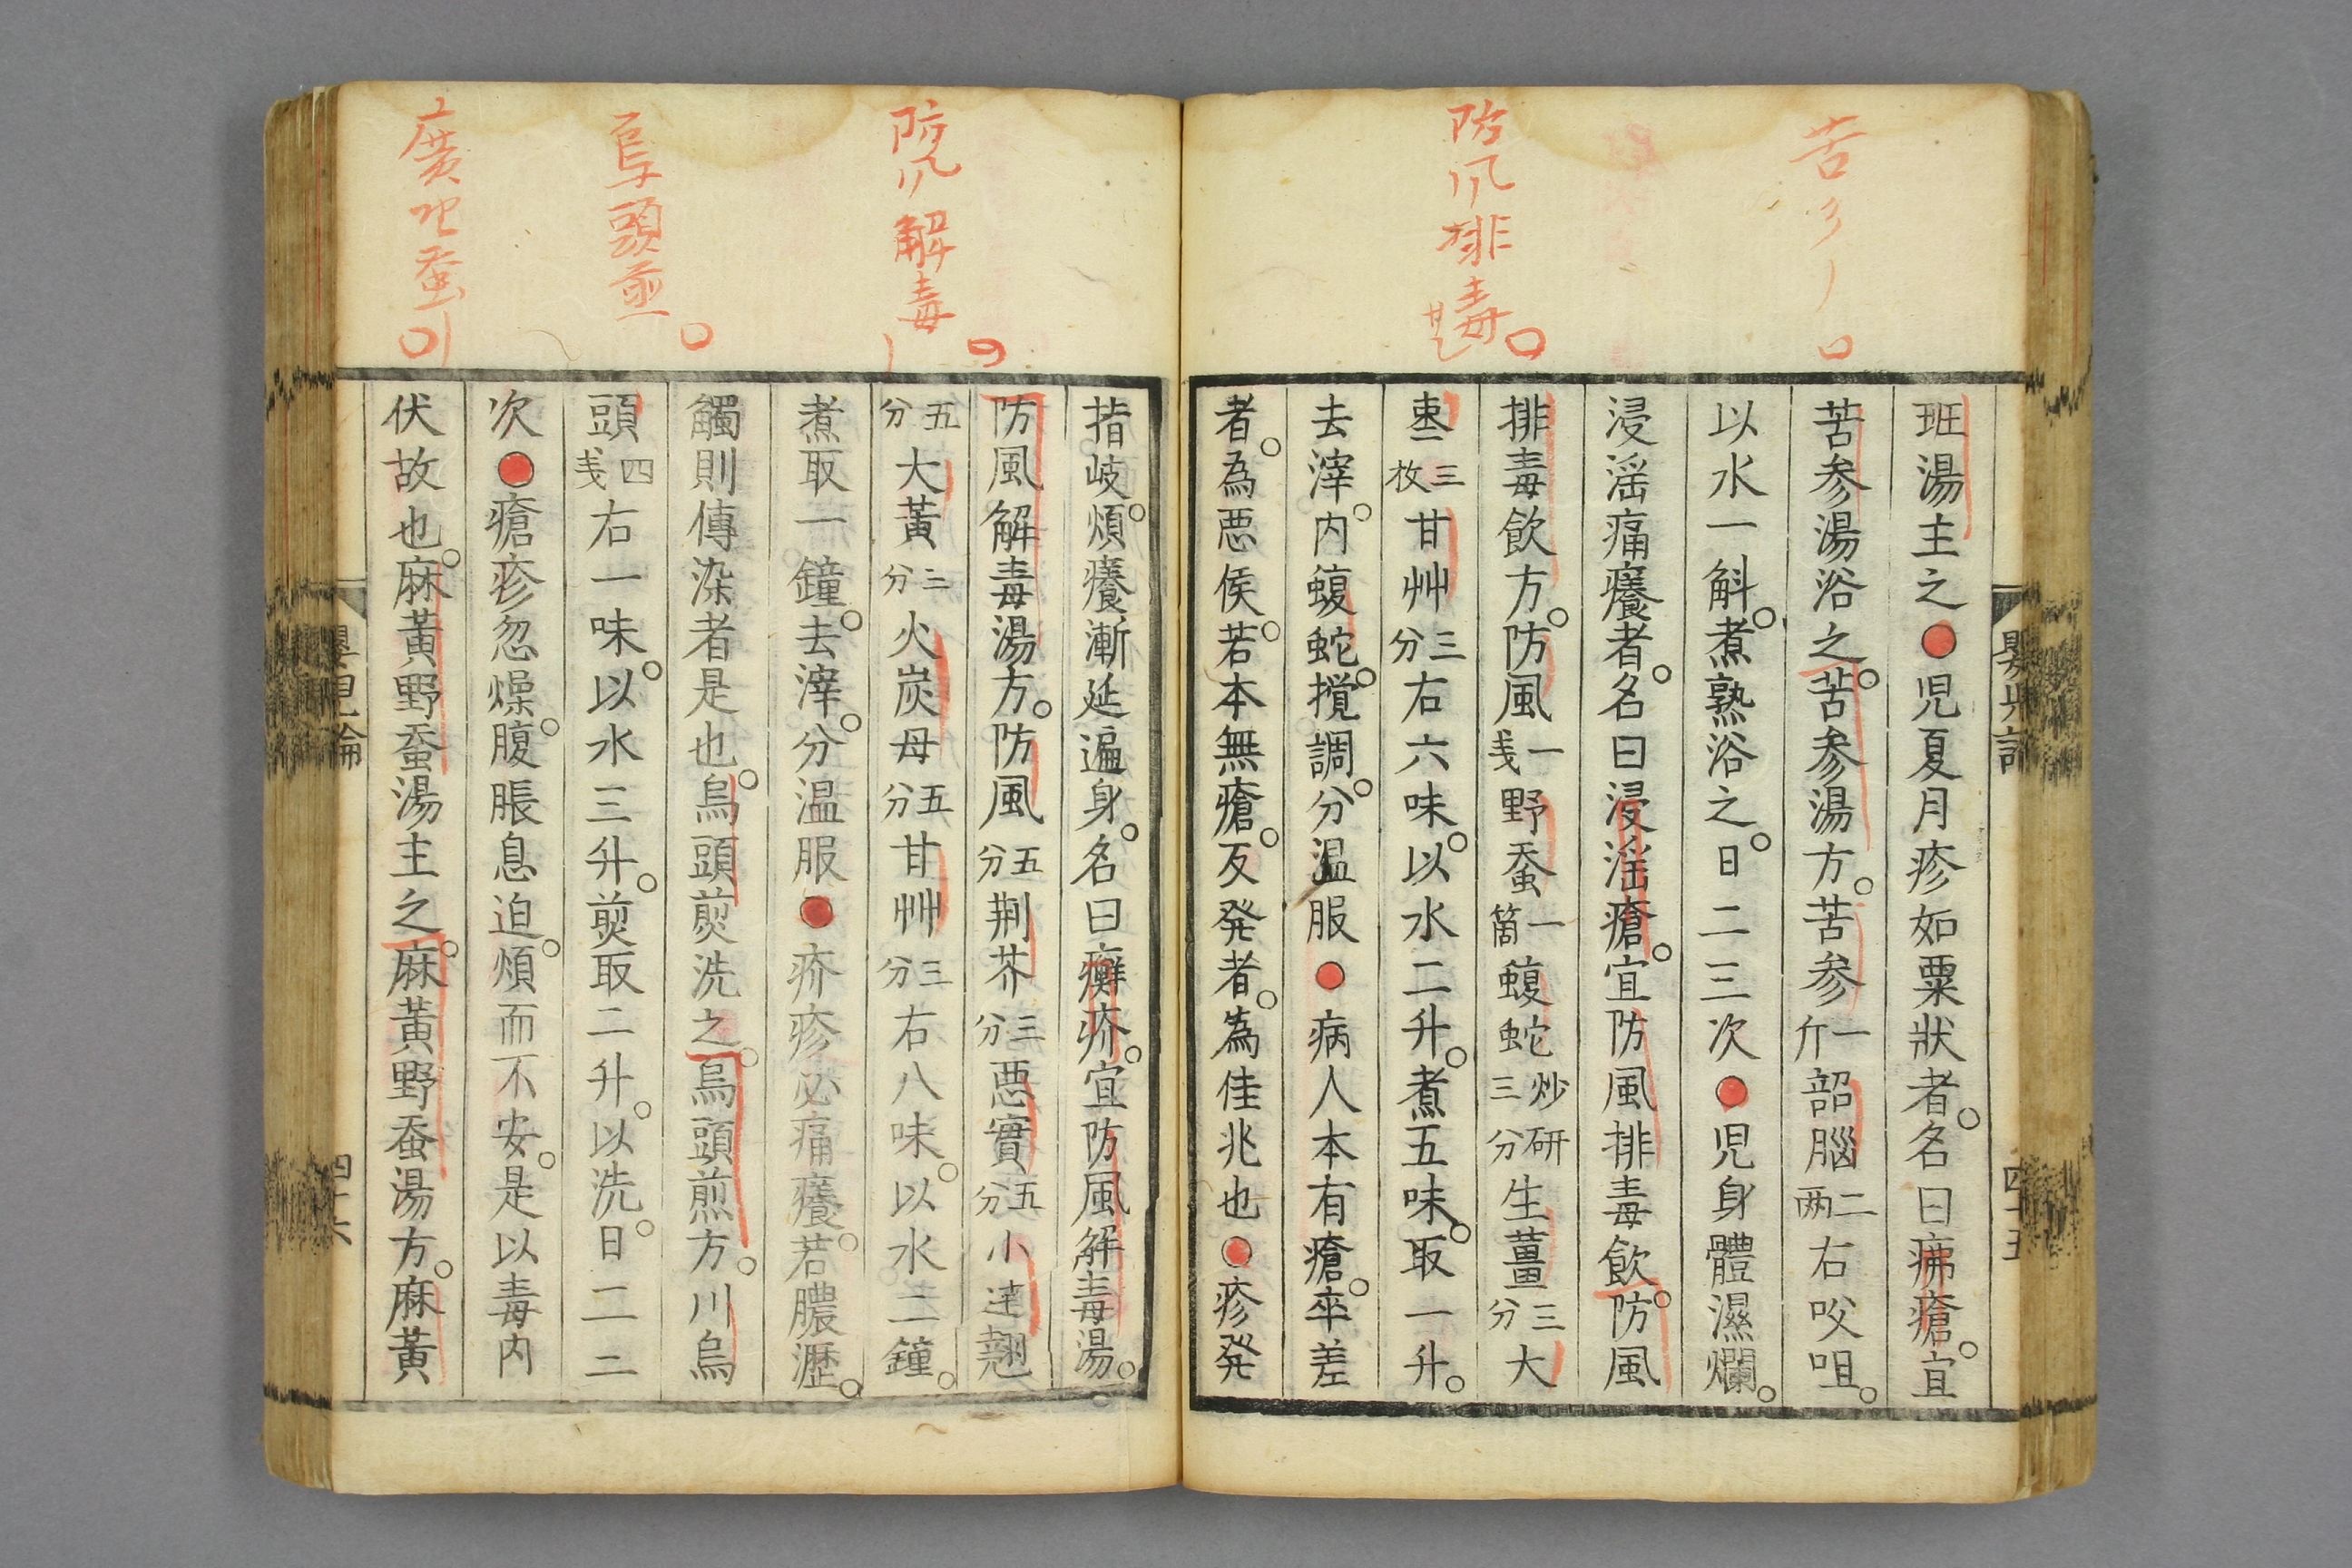 苦
班湯主之●児夏月疹如粟狀者。名曰疿瘡。宜
苦参湯浴之。苦参湯方。苦参一斤韶腦二両右㕮咀。
以水一斛。煮熟浴之。日二三次●児身體濕爛。
浸淫痛癢者。名曰浸淫瘡。宜防風排毒飲。防風
防風排毒
排毒飲方。防風一戔野蚕一箇蝮蛇炒研三分生薑三分大
棗三枚甘艸三分右六味。以水二升。煮五味。取一升。
去滓。内蝮蛇。攪調。分温服●病人本有瘡。卒差
者。為悪候。若本無瘡。反発者。為佳兆也●疹発
四十五
指岐。煩癢漸延遍身。名曰癬疥。宜防風解毒湯。
防風解毒
防風解毒湯方。防風五分荆芥三分悪實五分小連翹
五分大黃三分火炭母五分甘艸三分右八味。以水二鐘。
煮取一鐘。去滓。分温服●疥疹必痛癢。若膿瀝。
觸則傳染者是也。烏頭煎洗之。烏頭煎方。川烏
烏頭煎
頭四戔右一味。以水三升。煎取二升。以洗。日一二
次●瘡疹忽燥。腹脹息迫。煩而不安。是以毒内
伏故也。麻黃野蚕湯主之。麻黃野蚕湯方。麻黃
四十六